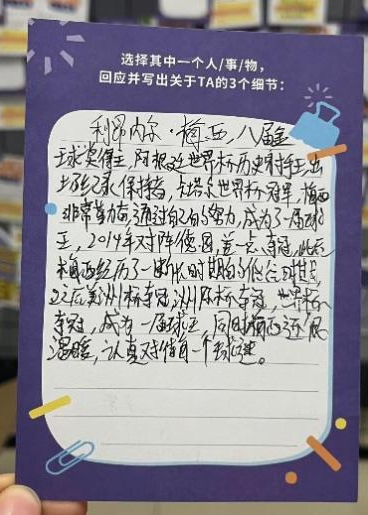 选择其中一个人/事/物，
回应并写出关于TA的3个细节：
利昂内尔·梅西，八届金
球奖得主，阿根廷世界杯历史射手王，出
场纪录保持者，卡塔尔世界杯冠军，梅西
非常勤奋，通过自己的努力，成为了一届球
王，2014年对阵德国，差一点夺冠，此后
梅西经历了一段长时期的低谷时期，
之后美洲杯夺冠，欧美杯夺冠，世界杯
夺冠，成为一届球王，同时梅西还很
温暖，认真对待每一个球迷。